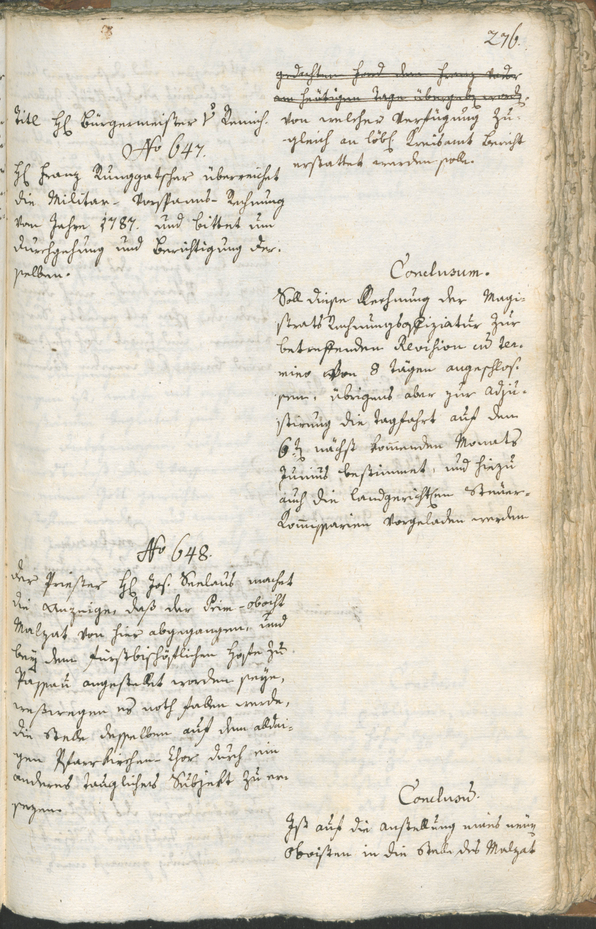 276.
gedachten Hend dem Franz Xador
am heütigen Tage übergeben worden,
von welcher Verfügung zu-
gleich an löbl Kreisamt Bericht
erstattet werden solle.
Titl H. Bürgermeister v Remich.
No 647.
H. Franz Rungatscher überreichet
die Militar-Vorspanns-Rechnung
von Jahre 1787. und bittet um
Durchgehung und Berichtigung der-
selben.
Conclusum.
Soll diese Rechnung der Magi-
strats Rechnungsoffiziatur zur
betreffenden Revision cum ter-
mino von 8 Tägen angeschlos-
sen, übrigens aber zur Adju-
stirung die Tagfahrt auf den
6t nächst kommenden Monats
Junius bestimmet, und hiezu
auch die Landgerichtlichen Steüer-
Kommissarien vorgeladen werden
No 648.
Der Priester H. Jos. Seelaus machet
die Anzeige, daß der Prim-oboist
Malzat von hier abgegangen, und
bey dem Fürstbischöflichen Hofe zu
Passau angestellet worden seye,
weßwegen es noth haben werde,
die Stelle desselben auf dem aldai-
gen Pfarrkirchen-Chor durch ein
anderes taugliches Subjekt zu er-
sezen.
Conclusum.
Ist auf die Anstellung eines neüen
Oboisten in die Stelle des Malzat